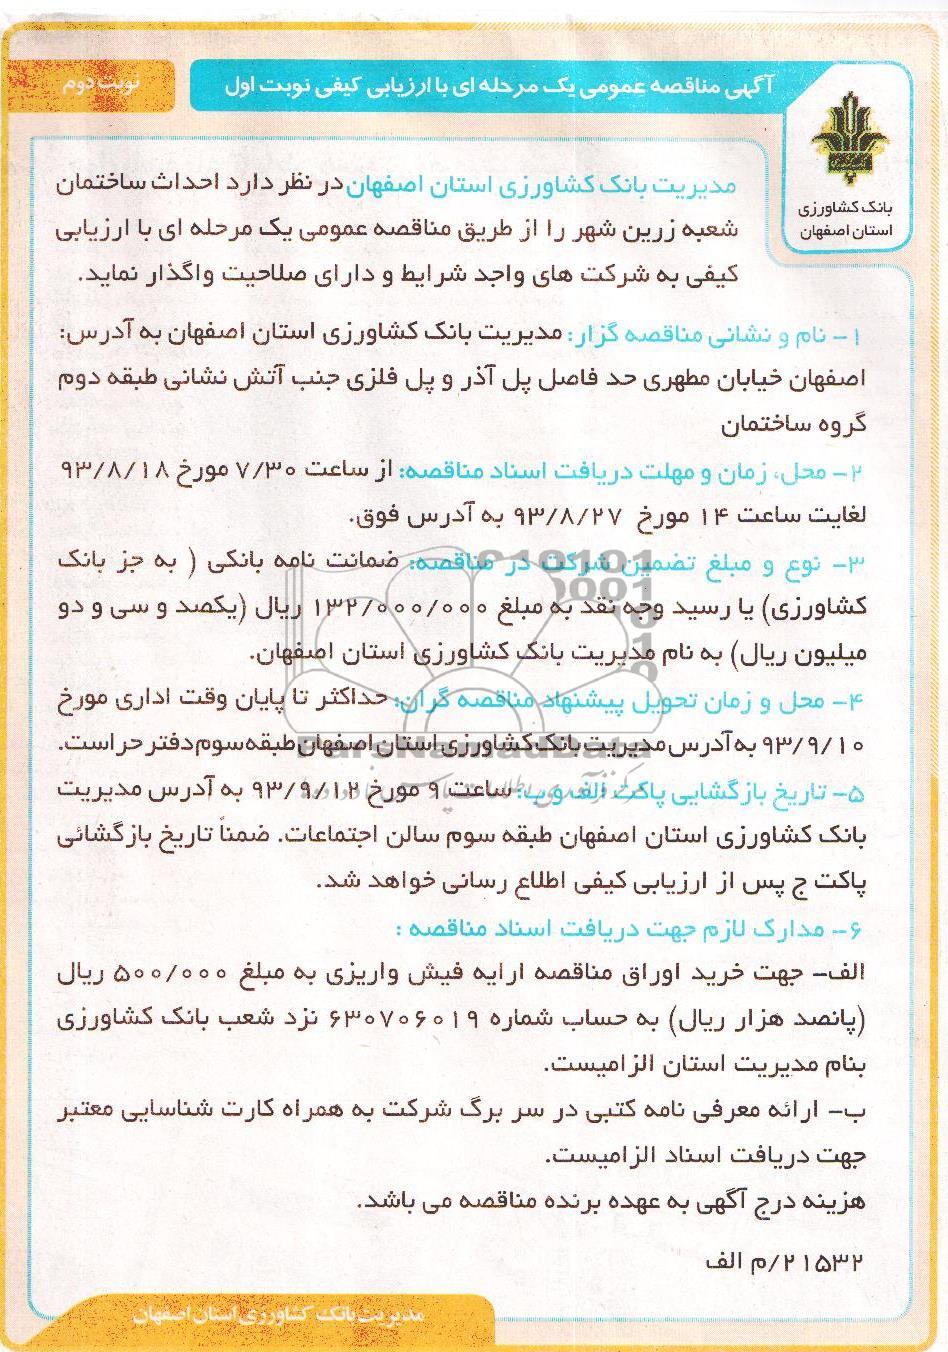 آگهی مناقصه عمومی یک مرحله ای با ارزیابی کیفی نوبت اول
نوبت دوم
بانک کشاورزی
استان اصفهان
مدیریت بانک کشاورزی استان اصفهان در نظر دارد احداث ساختمان
شعبه زرین شهر را از طریق مناقصه عمومی یک مرحله ای با ارزیابی
کیفی به شرکت های واجد شرایط و دارای صلاحیت واگذار نماید.
۱- نام و نشانی مناقصه گزار: مدیریت بانک کشاورزی استان اصفهان به آدرس:
اصفهان خیابان مطهری حد فاصل پل آذر و پل فلزی جنب آتش نشانی طبقه دوم
گروه ساختمان
۲- محل، زمان و مهلت دریافت اسناد مناقصه: از ساعت ۷/۳۰ مورخ ۹۳/۸/۱۸
لغایت ساعت ۱۴ مورخ ۹۳/۸/۲۷ به آدرس فوق.
۳- نوع و مبلغ تضمین شرکت در مناقصه: ضمانت نامه بانکی ( به جز بانک
کشاورزی) یا رسید وجه نقد به مبلغ ۱۳۲/۰۰۰/۰۰۰ ریال (یکصد و سی و دو
میلیون ریال) به نام مدیریت بانک کشاورزی استان اصفهان.
۴- محل و زمان تحویل پیشنهاد مناقصه گران: حداکثر تا پایان وقت اداری مورخ
۹۳/۹/۱۰ به آدرس مدیریت بانک کشاورزی استان اصفهان طبقه سوم دفتر حراست.
ParsNamadData
۵- تاریخ بازگشایی پاکت الف و ب: ساعت ۹ مورخ ۹۳/۹/۱۲ به آدرس مدیریت
بانک کشاورزی استان اصفهان طبقه سوم سالن اجتماعات. ضمناً تاریخ بازگشائی
پاکت ج پس از ارزیابی کیفی اطلاع رسانی خواهد شد.
۶- مدارک لازم جهت دریافت اسناد مناقصه :
الف- جهت خرید اوراق مناقصه ارایه فیش واریزی به مبلغ ۵۰۰/۰۰۰ ریال
(پانصد هزار ریال) به حساب شماره ۶۳۰۷۰۶۰۱۹ نزد شعب بانک کشاورزی
بنام مدیریت استان الزامیست.
ب- ارائه معرفی نامه کتبی در سر برگ شرکت به همراه کارت شناسایی معتبر
جهت دریافت اسناد الزامیست.
هزینه درج آگهی به عهده برنده مناقصه می باشد.
۲۱۵۳۲/م الف
مدیریت بانک کشاورزی استان اصفهان